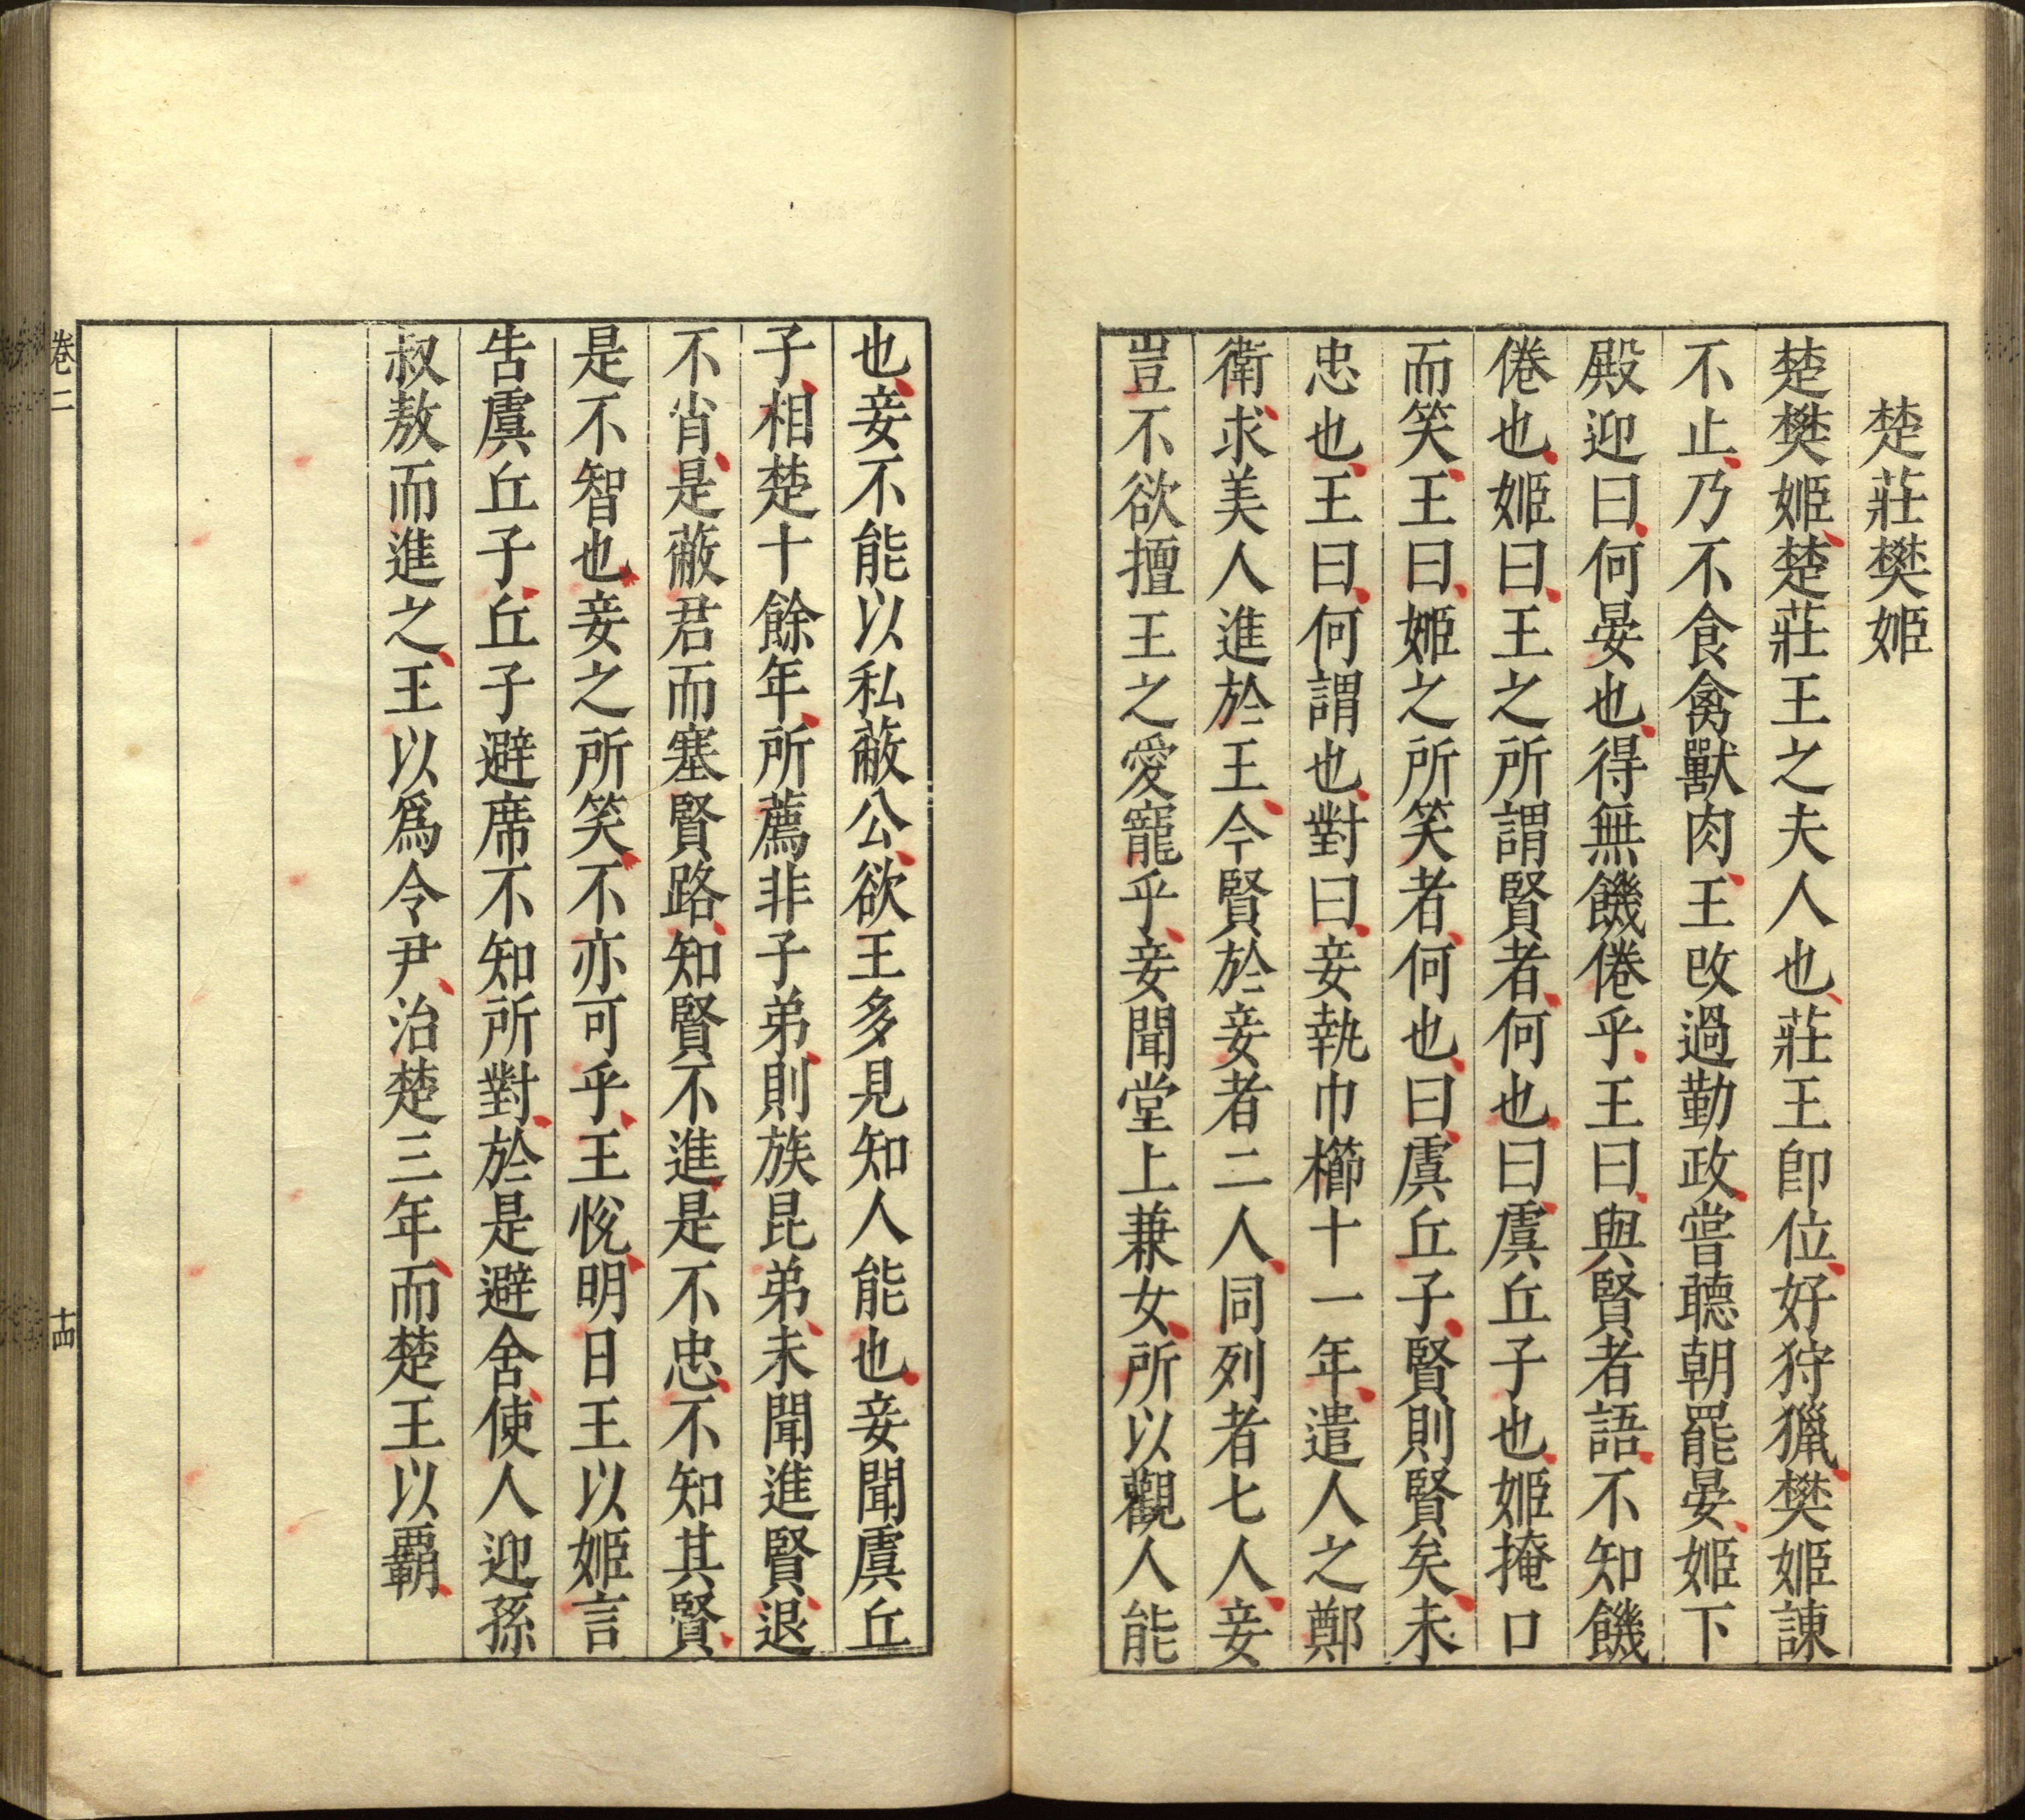 楚莊樊姬
楚樊姬楚莊王之夫人也莊王卽位好狩獵樊姬諫
不止乃不食禽獸肉王改過勤政嘗聽朝罷晏姬下
殿迎曰何晏也得無饑倦乎王曰與賢者語不知饑
倦也姬曰王之所謂賢者何也曰虞丘子也姬掩口
而笑王曰姬之所笑者何也曰虞丘子賢則賢矣未
忠也王曰何謂也對曰妾執巾櫛十一年遣人之鄭
衛求美人進於王今賢於妾者二人同列者七人妾
豈不欲擅王之愛寵乎妾聞堂上兼女所以觀人能
也妾不能以私蔽公欲王多見知人能也妾聞虞丘
子相楚十餘年所薦非子弟則族昆弟未聞進賢退
不肖是蔽君而塞賢路知賢不進是不忠不知其賢
是不智也妾之所笑不亦可乎王悅明日王以姬言
告虞丘子丘子避席不知所對於是避舍使人迎孫
叔敖而進之王以爲令尹治楚三年而楚王以霸
卷二
十四